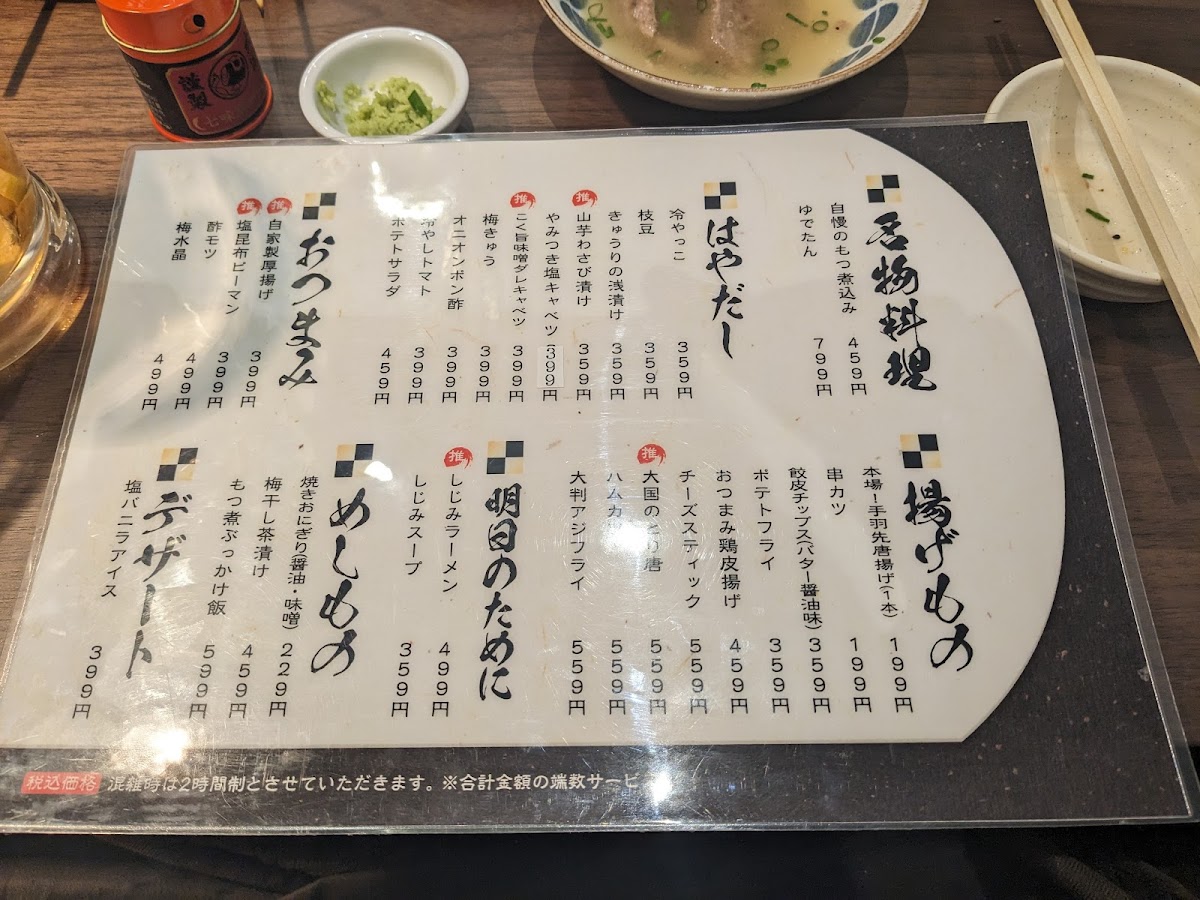 謹製
七味
名物料理
自慢のもつ煮込み 459円
ゆでたん 799円
はやだし
冷やっこ 359円
枝豆 359円
きゅうりの浅漬け 359円
推
山芋わさび漬け 359円
やみつき塩キャベツ 399円
推
こく旨味噌ダレキャベツ 399円
梅きゅう 399円
オニオンポン酢 399円
冷やしトマト 399円
ポテトサラダ 459円
おつまみ
推
自家製厚揚げ 399円
推
塩昆布ピーマン 399円
酢モツ 499円
梅水晶 499円
揚げもの
本場!手羽先唐揚げ(1本) 199円
串カツ 199円
餃皮チップス(バター醤油味) 359円
ポテトフライ 359円
おつまみ鶏皮揚げ 459円
チーズスティック 559円
推
大国のとり唐 559円
ハムカツ 559円
大判アジフライ 559円
明日のために
推
しじみラーメン 499円
しじみスープ 359円
めしもの
焼きおにぎり(醤油・味噌) 229円
梅干し茶漬け 459円
もつ煮ぶっかけ飯 599円
デザート
塩バニラアイス 399円
税込価格 混雑時は2時間制とさせていただきます。※合計金額の端数サービ